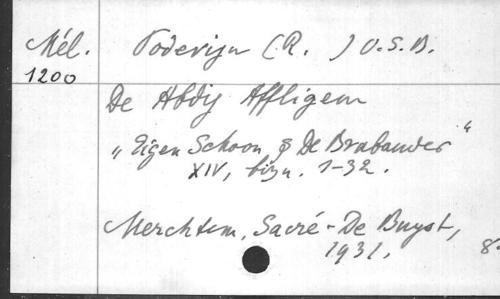 Mél. Podevijn (R. ) O.S.B.
1200
De Abdij Affligem
„Eigen Schoon & De Brabander"
XIV, bijv. 1-32.
Merchtem, Sacré-De Buyst,
1931. 8-